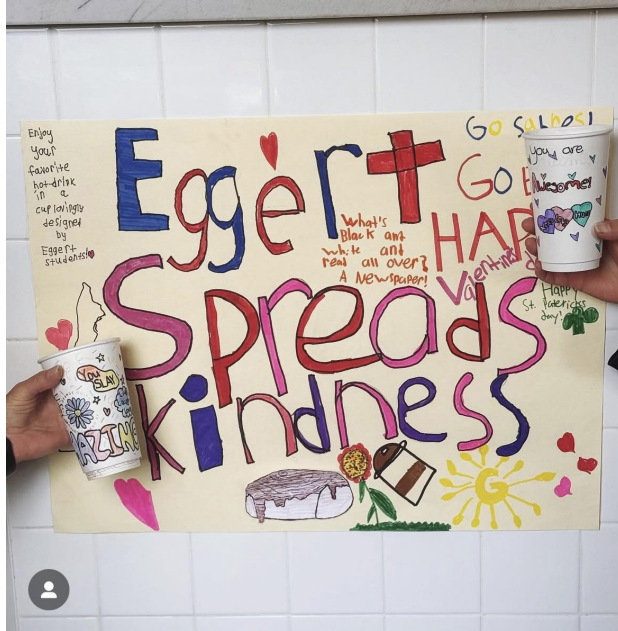 Enjoy
your
favorite
hot drink
in a
cup lovingly
designed
by
Eggert
students!
Eggert
Spreads
kindness
What's
Black and
white and
read all over?
A Newspaper!
Go
Go
HAP
Valentine's
Happy
St. Patericks
day!
you are
Awesome!
You
SLAY
AZING
G